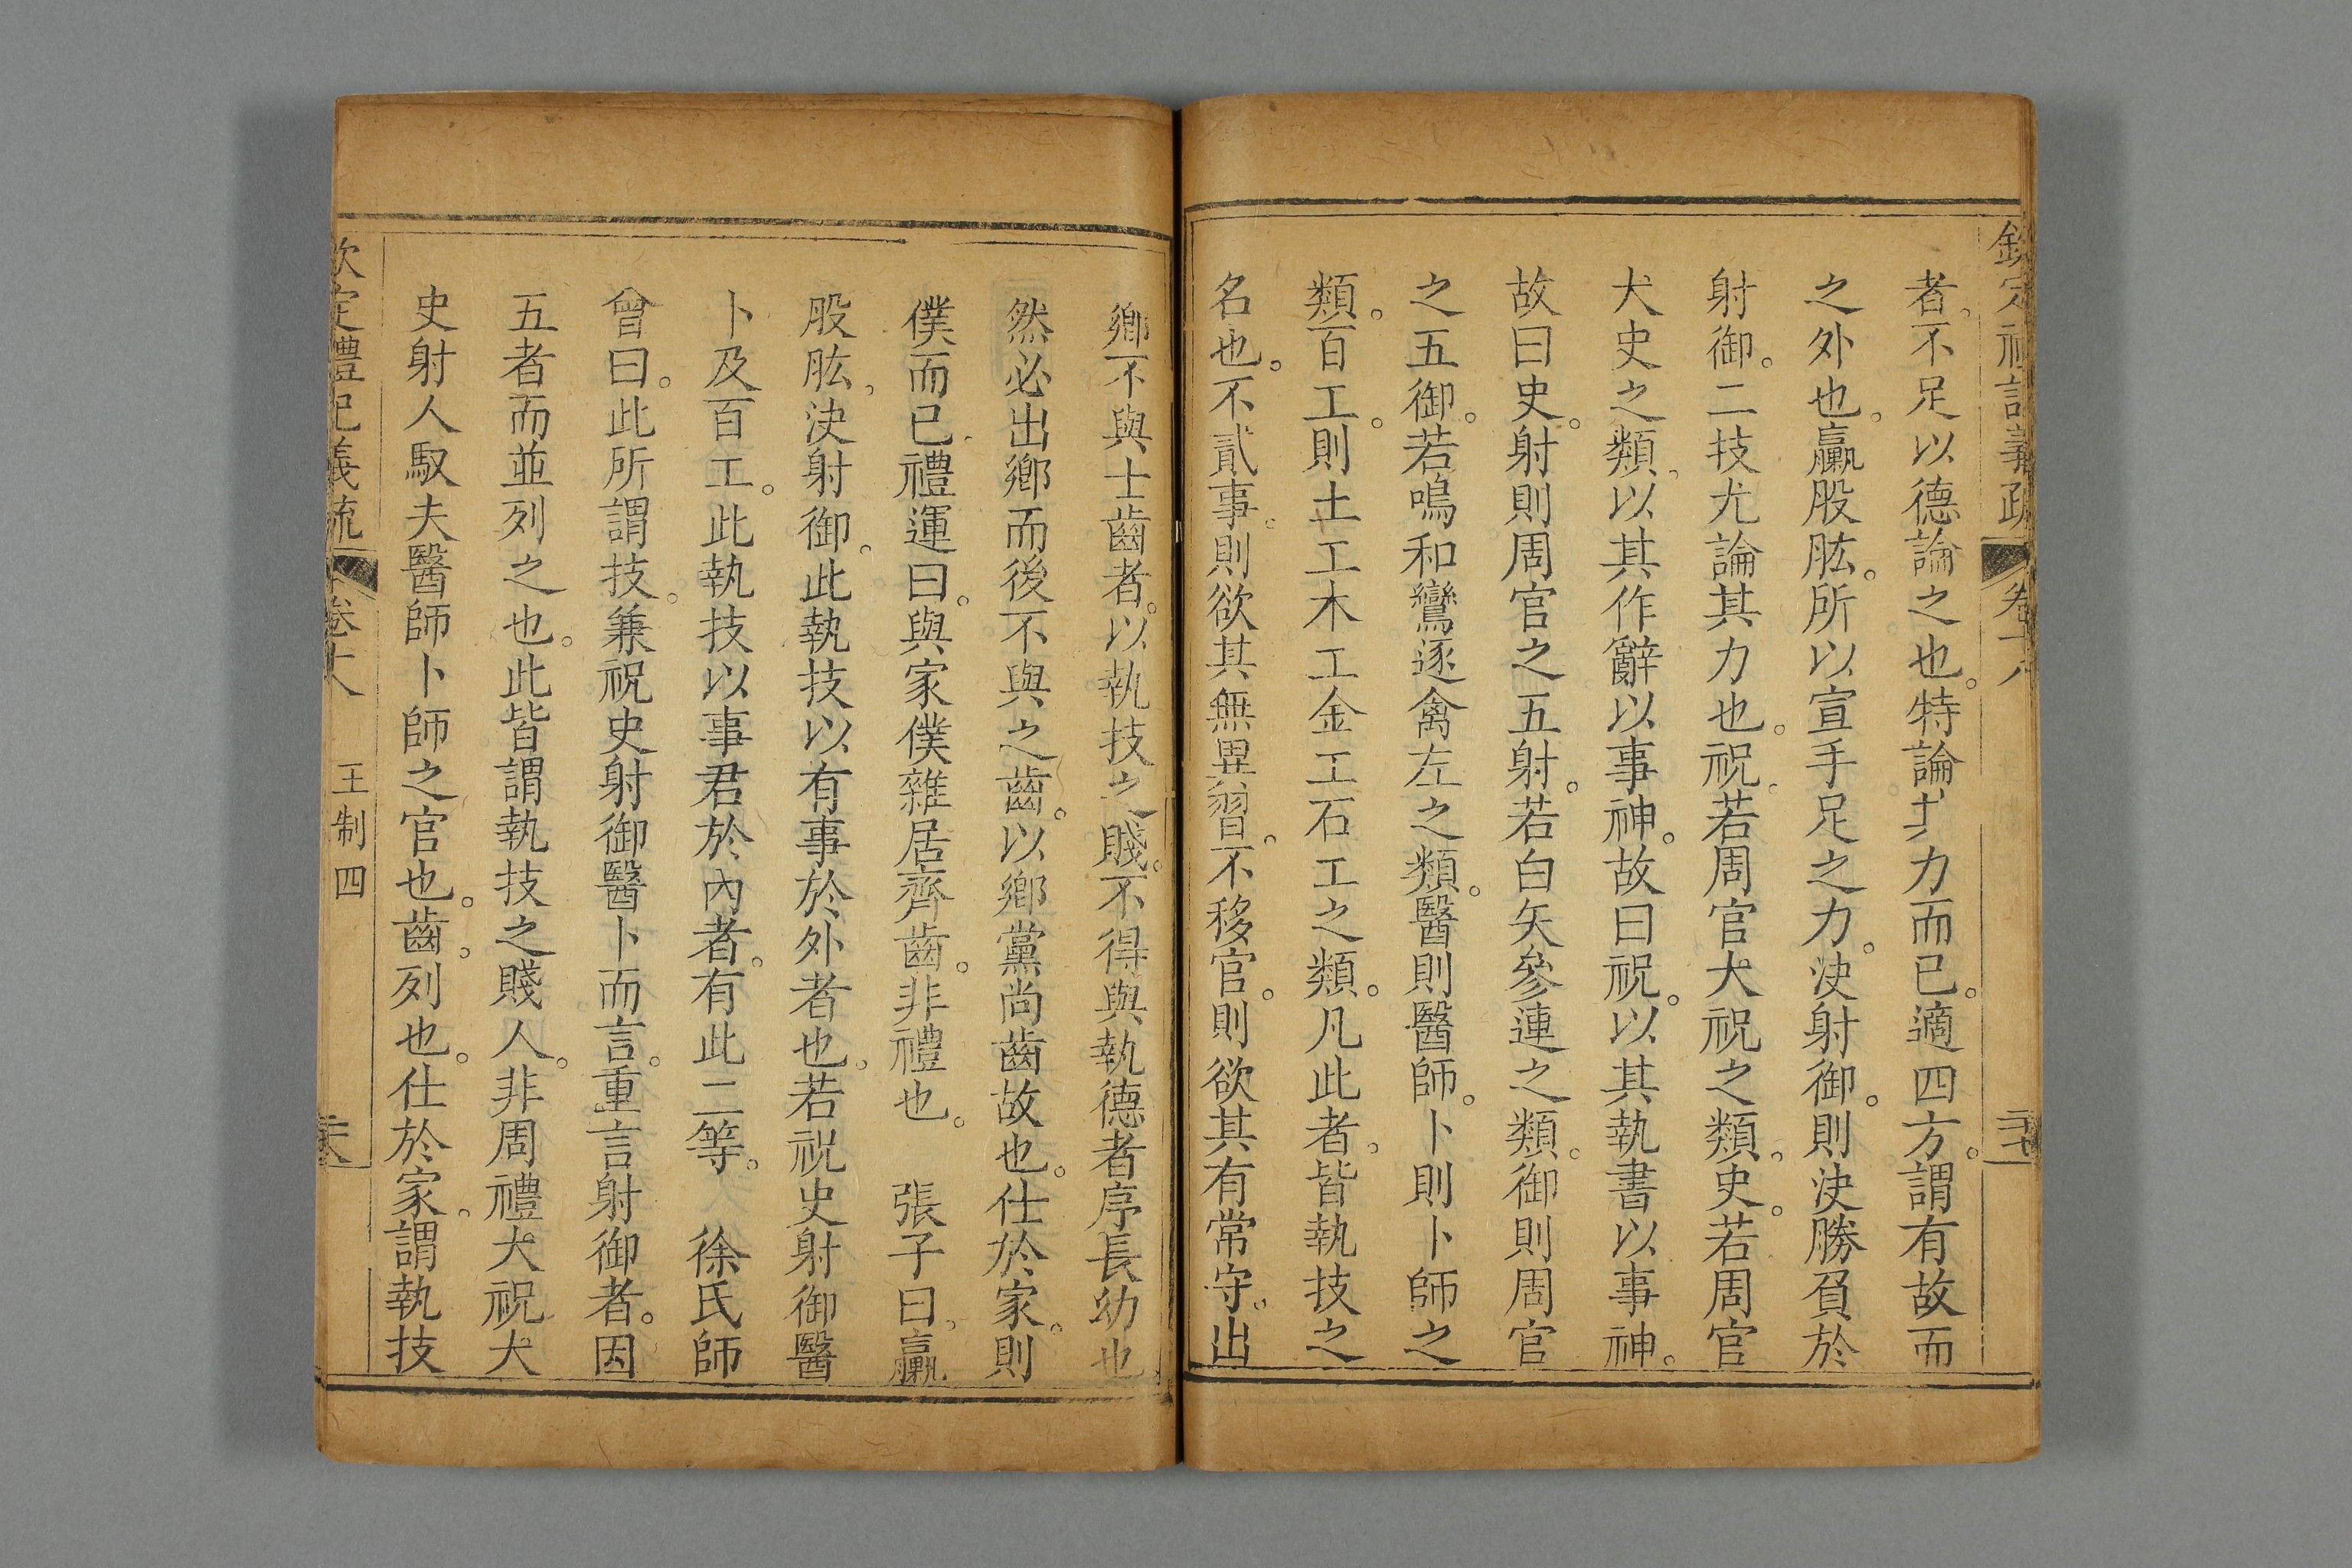 欽定禮記義疏 卷十八
者不足以德論之也。特論其力而已。適四方。謂有故而
之外也。臝股肱。所以宣手足之力。決射御。則決勝負於
射御。二技尤論其力也。祝。若周官大祝之類。史。若周官
大史之類。以其作辭以事神。故曰祝。以其執書以事神。
故曰史。射則周官之五射。若白矢參連之類。御則周官
之五御。若鳴和鸞逐禽左之類。醫則醫師。卜則卜師之
類。百工。則土工木工金工石工之類。凡此者。皆執技之
名也。不貳事。則欲其無異習。不移官。則欲其有常守。出
鄉不與士齒者。以執技之賤。不得與執德者序長幼也
然必出鄉而後不與之齒。以鄉黨尚齒故也。仕於家。則
僕而已。禮運曰。與家僕雜居齊齒。非禮也。 張子曰。臝
股肱。決射御。此執技以有事於外者也。若祝史射御醫
卜及百工。此執技以事君於內者。有此二等。 徐氏師
曾曰。此所謂技。兼祝史射御醫卜而言。重言射御者。因
五者而並列之也。此皆謂執技之賤人。非周禮大祝大
史射人馭夫醫師卜師之官也。齒。列也。仕於家。謂執技
欽定禮記義疏 卷十八 王制四